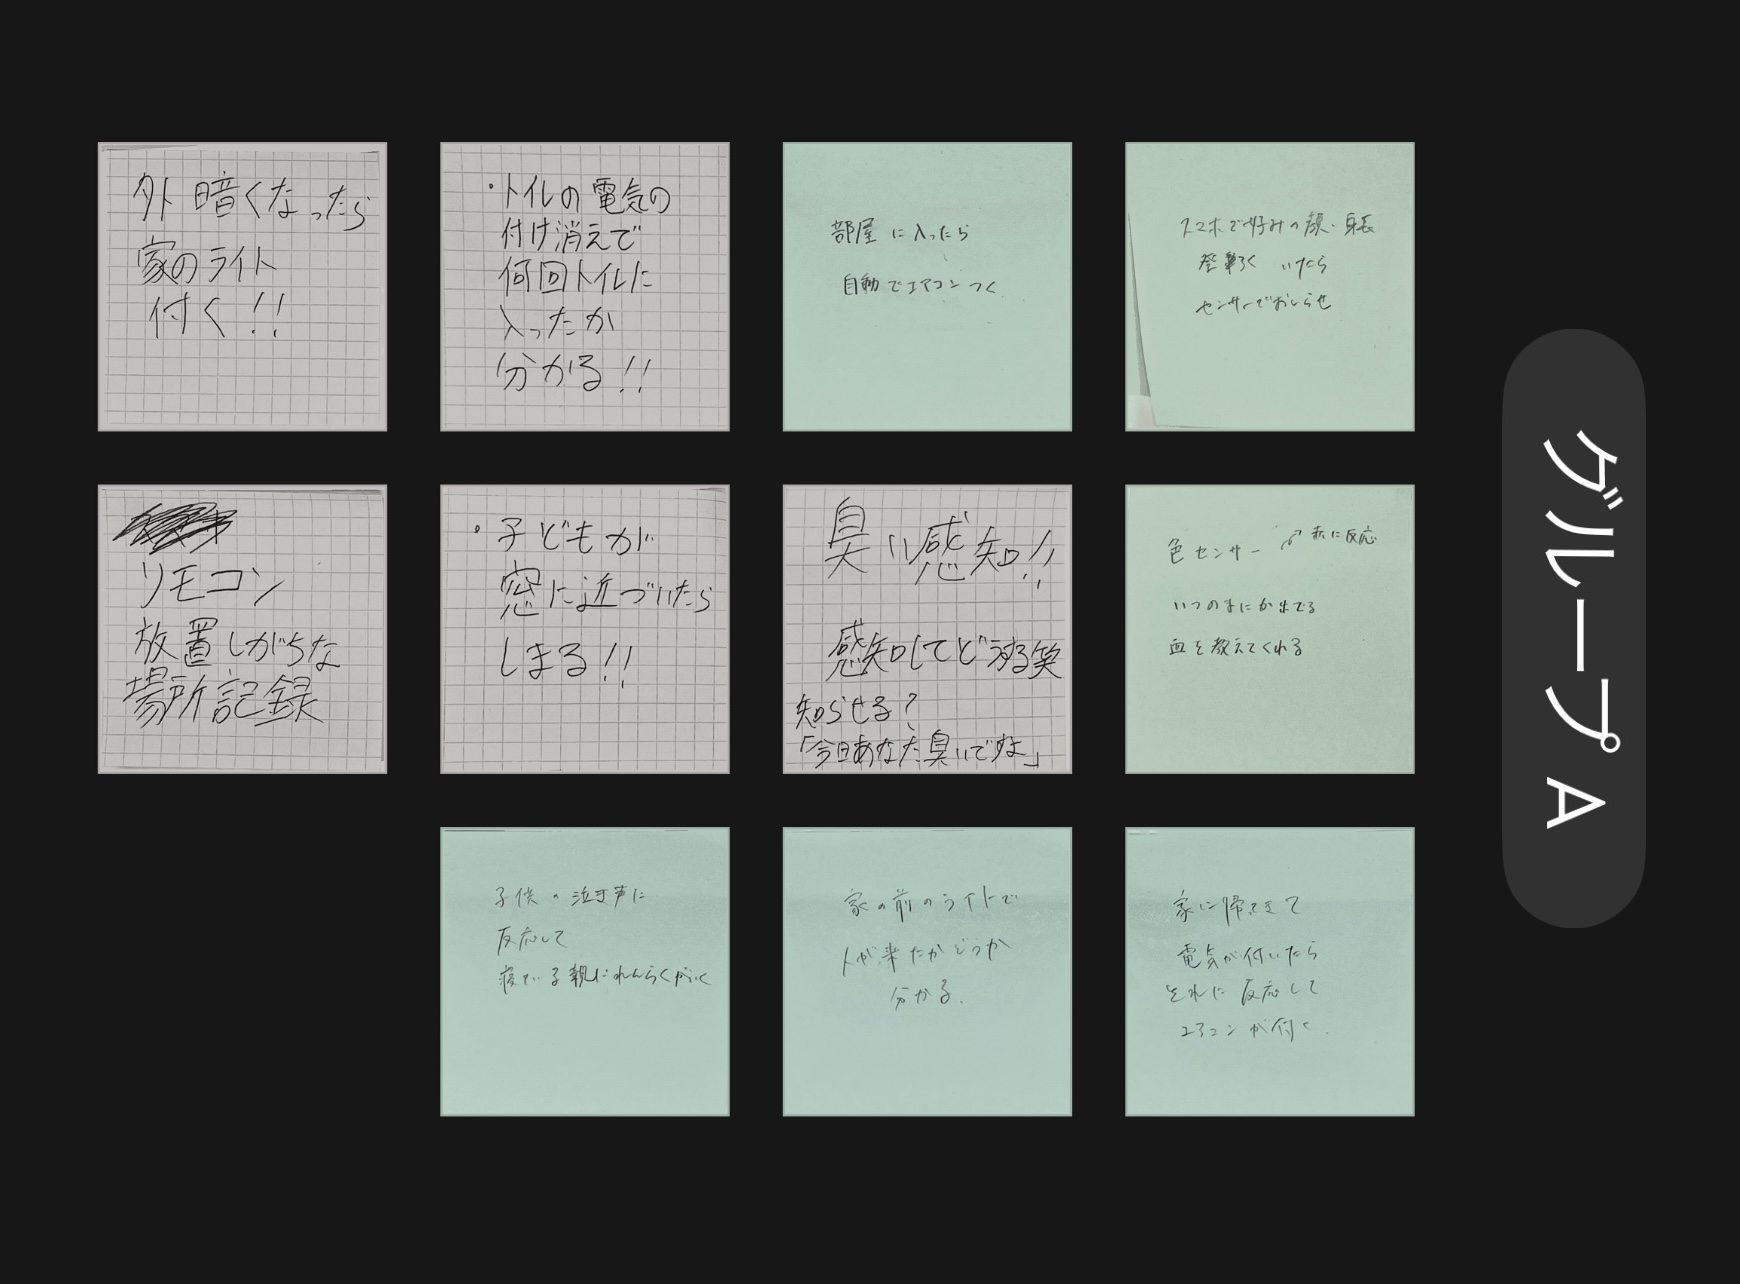 外 暗くなったら
家のライト
付く!!
・トイレの電気の
付け消えで
何回トイレに
入ったか
分かる!!
部屋に入ったら
自動でエアコンつく
スマホで好みの顔・身長
登録 いたら
センサーでおしらせ
リモコン
放置しがちな
場所記録
・子どもが
窓に近づいたら
しまる!!
臭い感知!!
感知してどうする笑
知らせる?
「今日あなた臭いですよ」
色センサー 赤に反応
いつのまにか出てる
血を教えてくれる
子供の泣き声に
反応して
寝ている親にれんらくがいく
家の前のライトで
人が来たかどうか
分かる.
家に帰ってきて
電気が付いたら
それに反応して
エアコンが付く.
グループ A